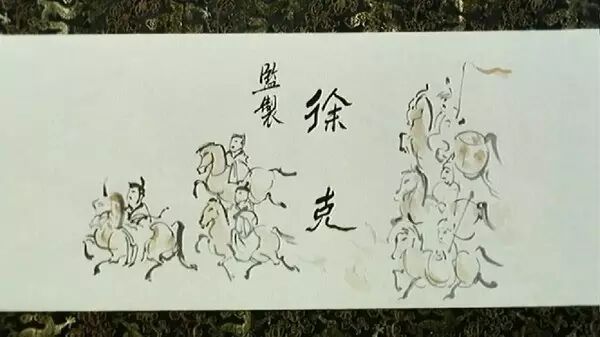 監製
徐克